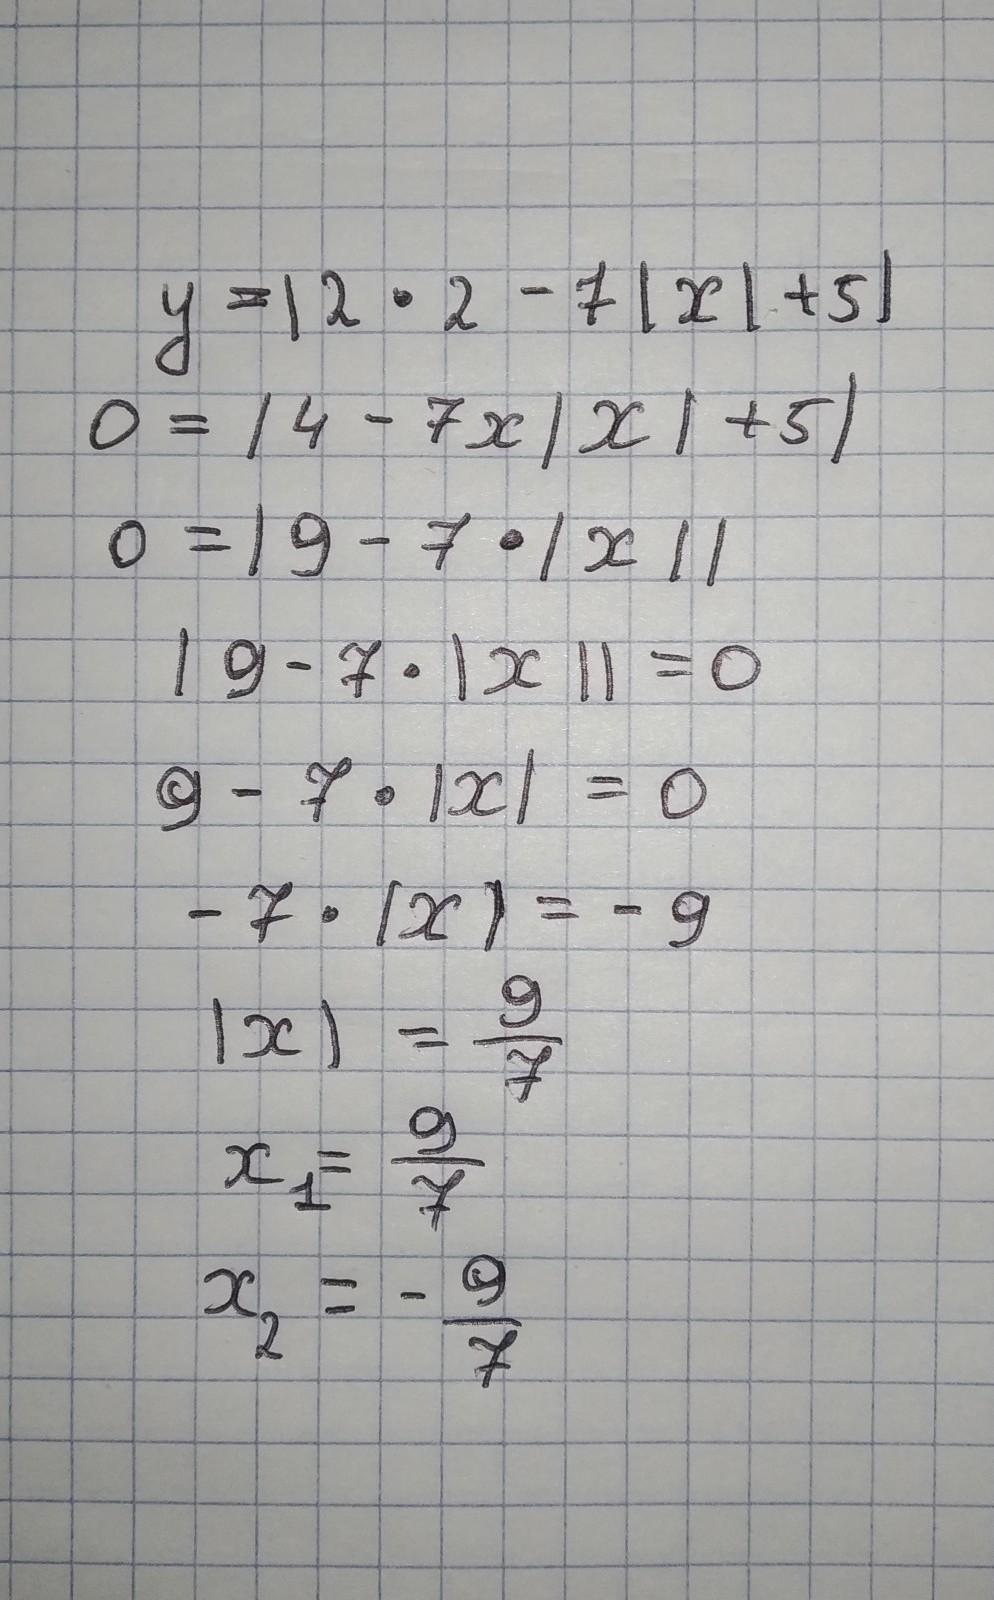 y = |2 · 2 - 7|x| + 5|
0 = |4 - 7x|x| + 5|
0 = |9 - 7 · |x||
|9 - 7 · |x|| = 0
9 - 7 · |x| = 0
- 7 · |x| = - 9
|x| = 9/7
x₁ = 9/7
x₂ = - 9/7